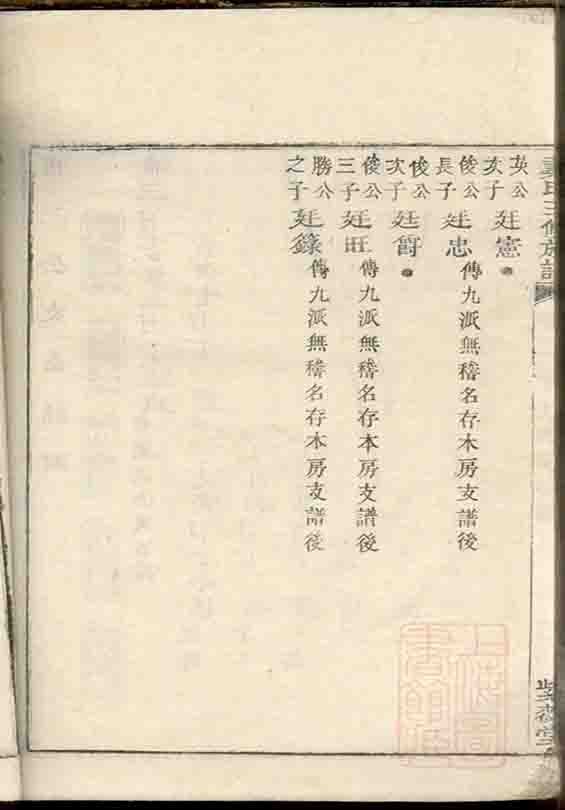 英公
次子
廷憲
俊公
長子
廷忠
傳九派無稽名存本房支譜後
俊公
次子
廷爵
俊公
三子
廷旺
傳九派無稽名存本房支譜後
勝公
之子
廷籙
傳九派無稽名存本房支譜後
氏三修族譜
上海圖書館藏